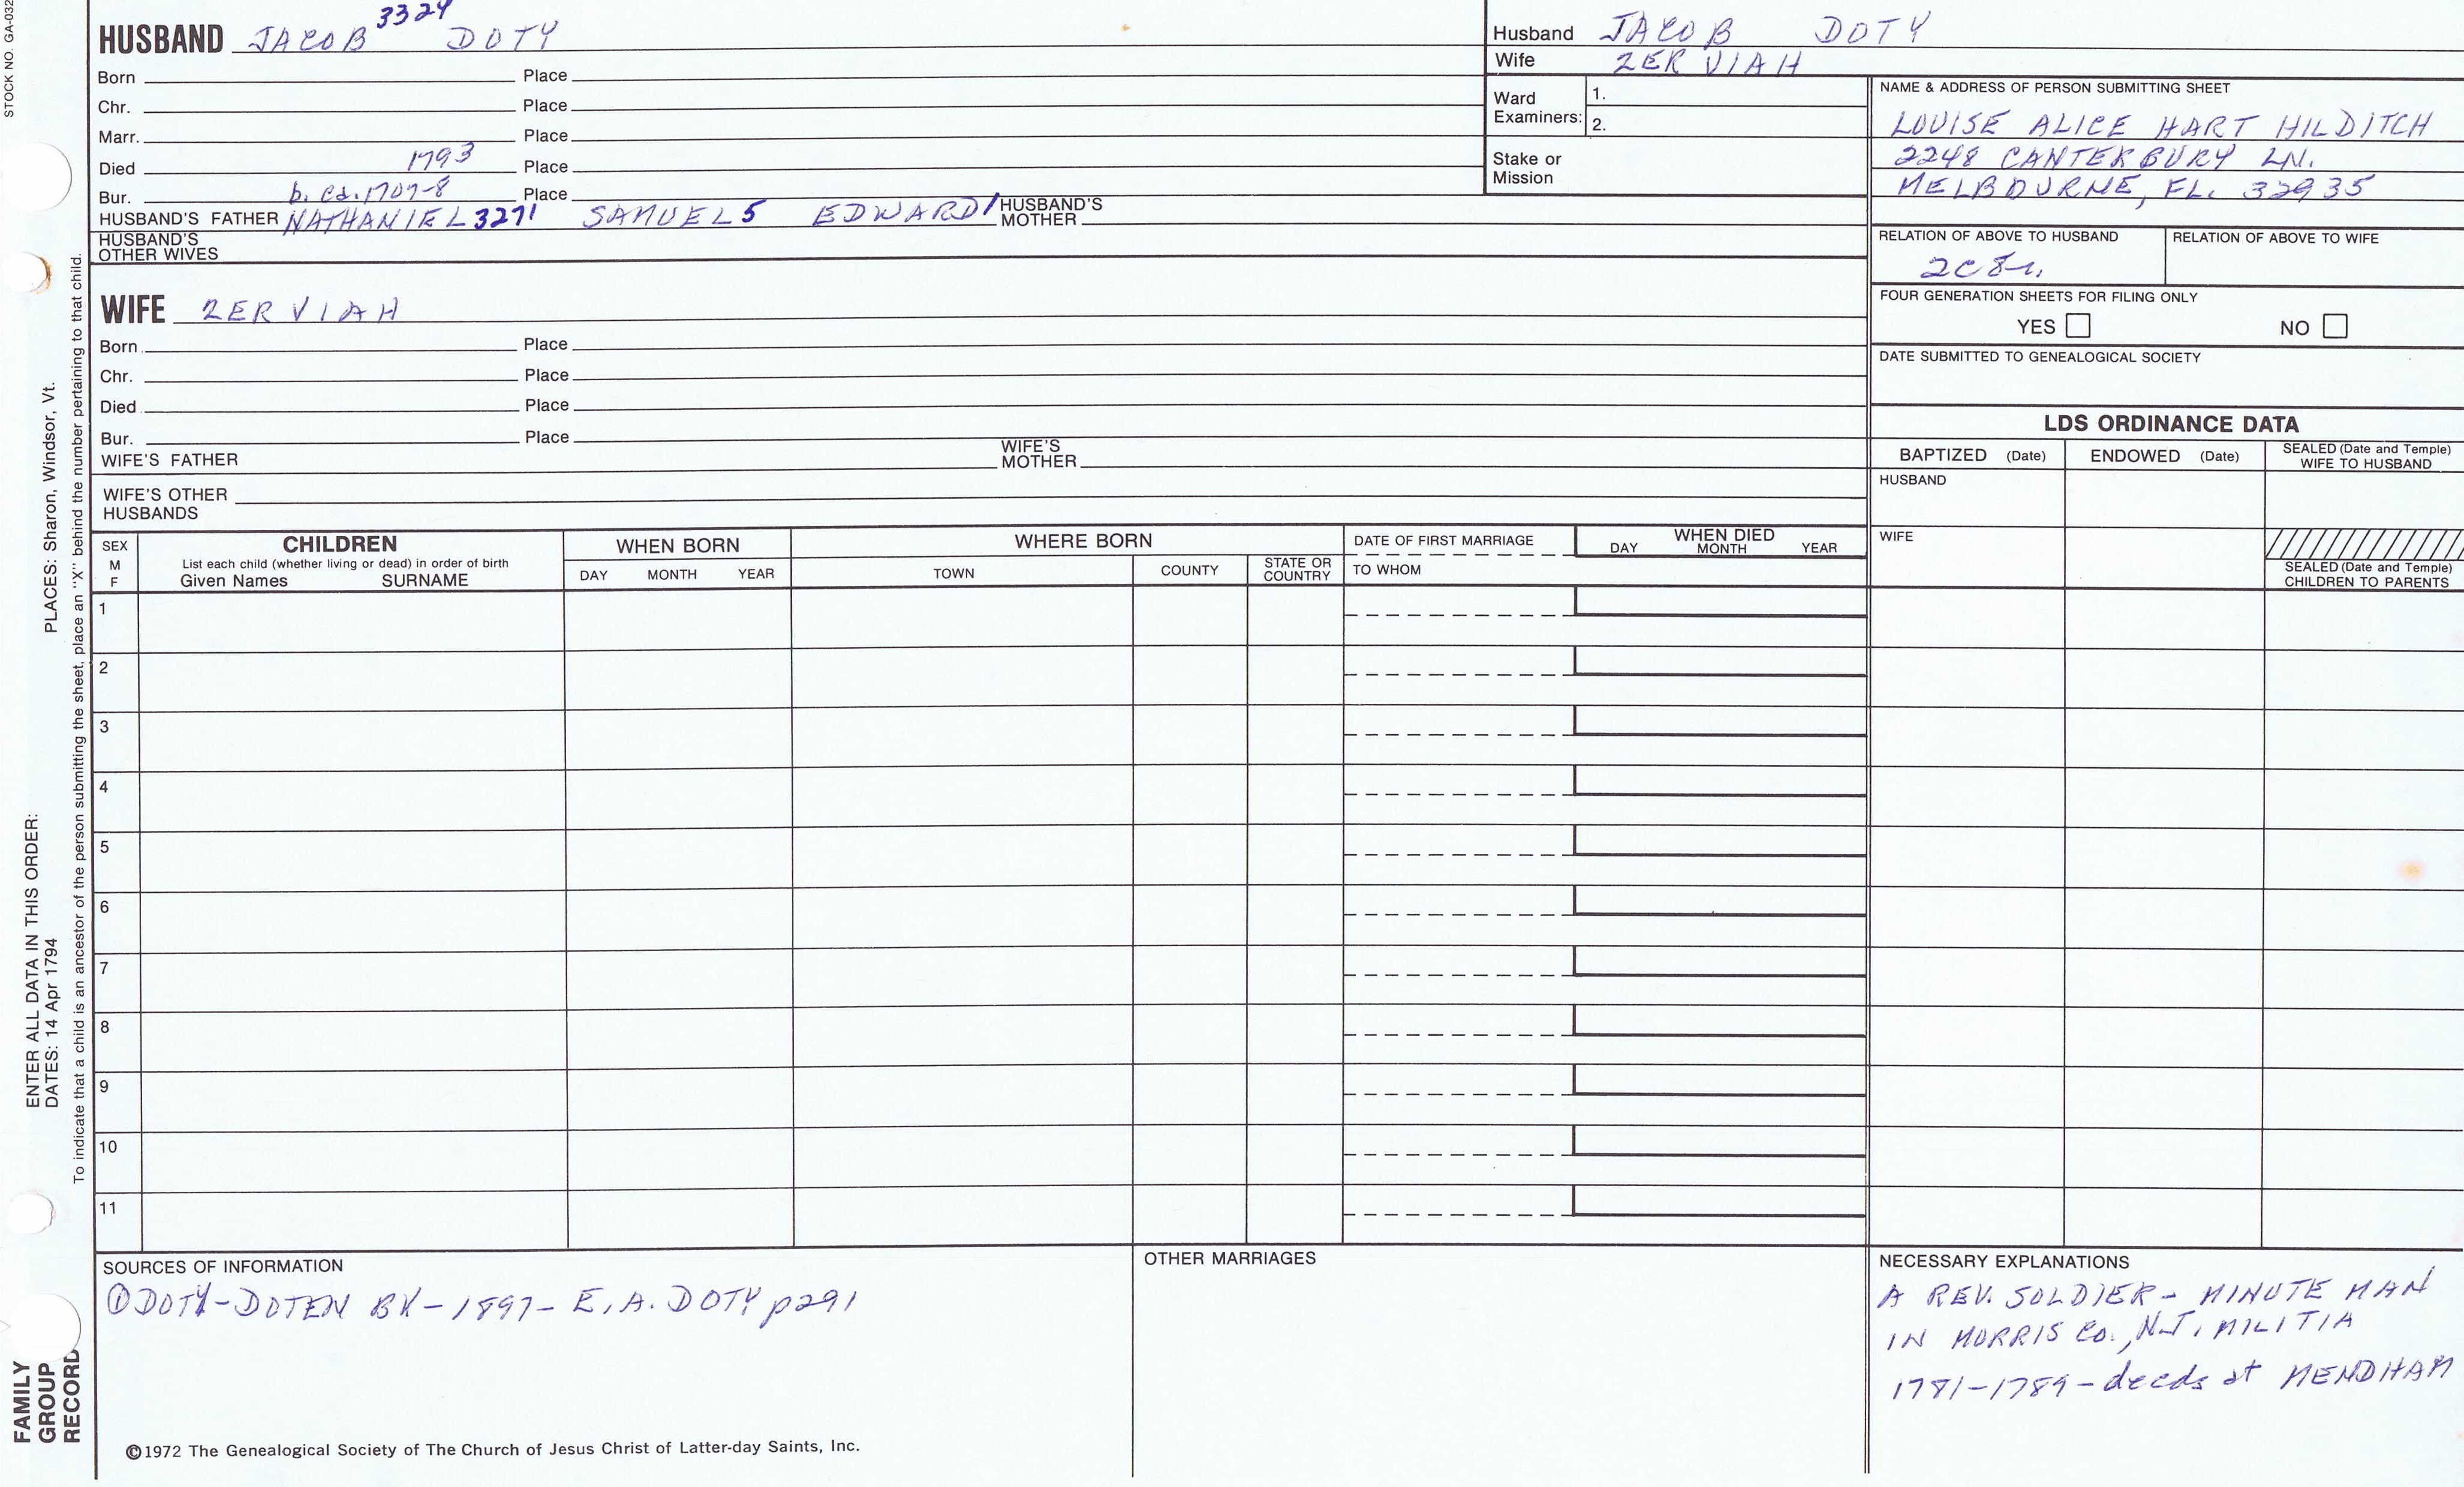 STOCK NO. GA-032
PLACES: Sharon, Windsor, Vt.
ENTER ALL DATA IN THIS ORDER:
DATES: 14 Apr 1794
To indicate that a child is an ancestor of the person submitting the sheet, place an "X" behind the number pertaining to that child.
FAMILY
GROUP
RECORD
HUSBAND JACOB 3324 DOTY
Born Place
Chr. Place
Marr. Place
Died 1793 Place
Bur. b. ca. 1707-8 Place
HUSBAND'S FATHER NATHANIEL 3271 SAMUEL 5 EDWARD 1 HUSBAND'S MOTHER
HUSBAND'S
OTHER WIVES
WIFE ZERVIAH
Born Place
Chr. Place
Died Place
Bur. Place
WIFE'S FATHER WIFE'S MOTHER
WIFE'S OTHER
HUSBANDS
Husband JACOB DOTY
Wife ZERVIAH
Ward
Examiners:
1.
2.
Stake or
Mission
NAME & ADDRESS OF PERSON SUBMITTING SHEET
LOUISE ALICE HART HILDITCH
2248 CANTERBURY LN.
MELBOURNE, FL. 32935
RELATION OF ABOVE TO HUSBAND RELATION OF ABOVE TO WIFE
2C8r.
FOUR GENERATION SHEETS FOR FILING ONLY
YES NO
DATE SUBMITTED TO GENEALOGICAL SOCIETY
LDS ORDINANCE DATA
BAPTIZED (Date) ENDOWED (Date) SEALED (Date and Temple)
WIFE TO HUSBAND
HUSBAND
WIFE
SEALED (Date and Temple)
CHILDREN TO PARENTS
SEX
M
F
CHILDREN
List each child (whether living or dead) in order of birth
Given Names SURNAME
WHEN BORN
DAY MONTH YEAR
WHERE BORN
TOWN COUNTY STATE OR COUNTRY
DATE OF FIRST MARRIAGE
TO WHOM
WHEN DIED
DAY MONTH YEAR
1
2
3
4
5
6
7
8
9
10
11
SOURCES OF INFORMATION
① DOTY-DOTEN BK-1897- E.A. DOTY p291
OTHER MARRIAGES
NECESSARY EXPLANATIONS
A REV. SOLDIER- MINUTE MAN
IN MORRIS CO., N.J. MILITIA
1781-1789-deeds at MENDHAM
©1972 The Genealogical Society of The Church of Jesus Christ of Latter-day Saints, Inc.